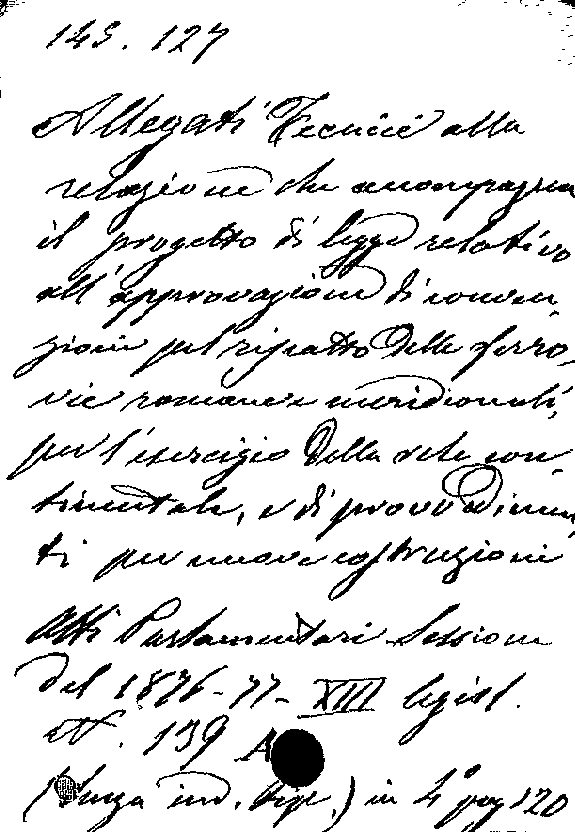 145. 127
Allegati Tecnici alla
relazione che accompagna
il progetto di legge relativo
all'approvazione di conven-
zioni pel riscatto delle ferro-
vie romane e meridionali,
per l'esercizio della rete con-
tinentale, e di provvedimen-
ti per nuove costruzioni
Atti Parlamentari Sessione
del 1876-77- XIII legisl.
N. 139 A
(Senza ind. tip.) in 4° pag 120